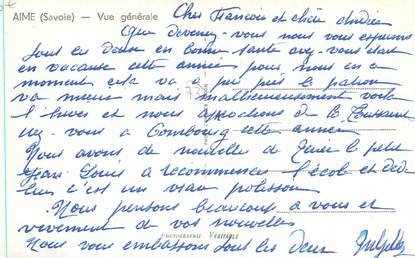 AIME (Savoie) — Vue générale
Cher François et chère Andrée
Que devenez-vous nous vous espérons
tous les deux en bonne santé avez-vous était
en vacance cette année pour nous en ce
moment cela va à peu près le patron
va mieux mais malheureusement voilà
l'hiver et nous approchons de la Toussaint
irez-vous a Combourg cette année
Nous avons de nouvelle de le petit
Jean Louis a recommencer l'école et
c'est un vrai polisson
Nous pensons beaucoup a vous et
vivement de vos nouvelles
PHOTOGRAPHIE VÉRITABLE
Nous vous embrassons tous les deux